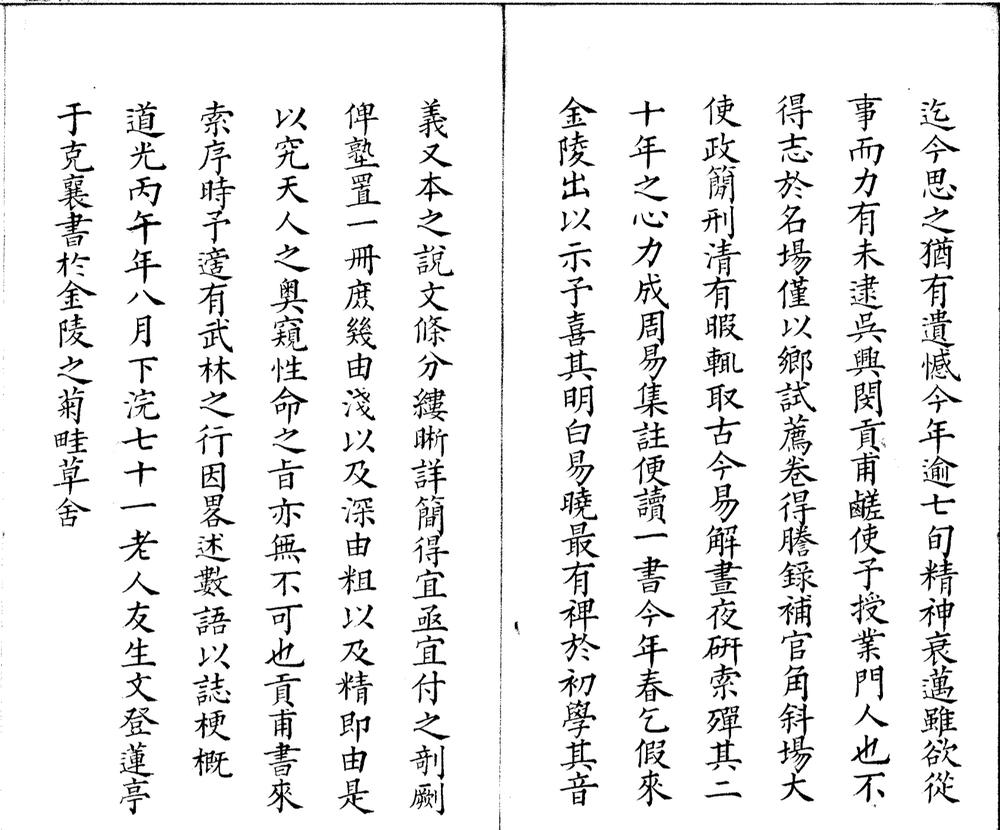 迄今思之猶有遺憾今年逾七旬精神衰邁雖欲從
事而力有未逮吳興閔貢甫鹺使予授業門人也不
得志於名場僅以鄉試薦卷得謄錄補官角斜場大
使政簡刑清有暇輒取古今易解晝夜研索殫其二
十年之心力成周易集註便讀一書今年春乞假來
金陵出以示予喜其明白易曉最有裨於初學其音
義又本之說文條分縷晰詳簡得宜亟宜付之剞劂
俾塾置一冊庶幾由淺以及深由粗以及精即由是
以究天人之奧窺性命之旨亦無不可也貢甫書來
索序時予適有武林之行因畧述數語以誌梗概
道光丙午年八月下浣七十一老人友生文登蓮亭
于克襄書於金陵之菊畦草舍